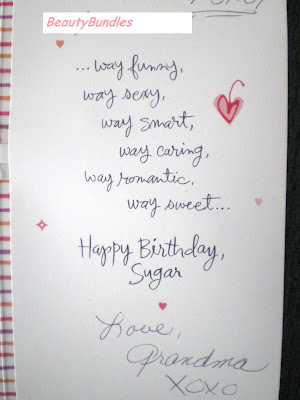 BeautyBundles
...way funny,
way sexy,
way smart,
way caring,
way romantic,
way sweet...
Happy Birthday,
Sugar
Love,
Grandma
XOXO